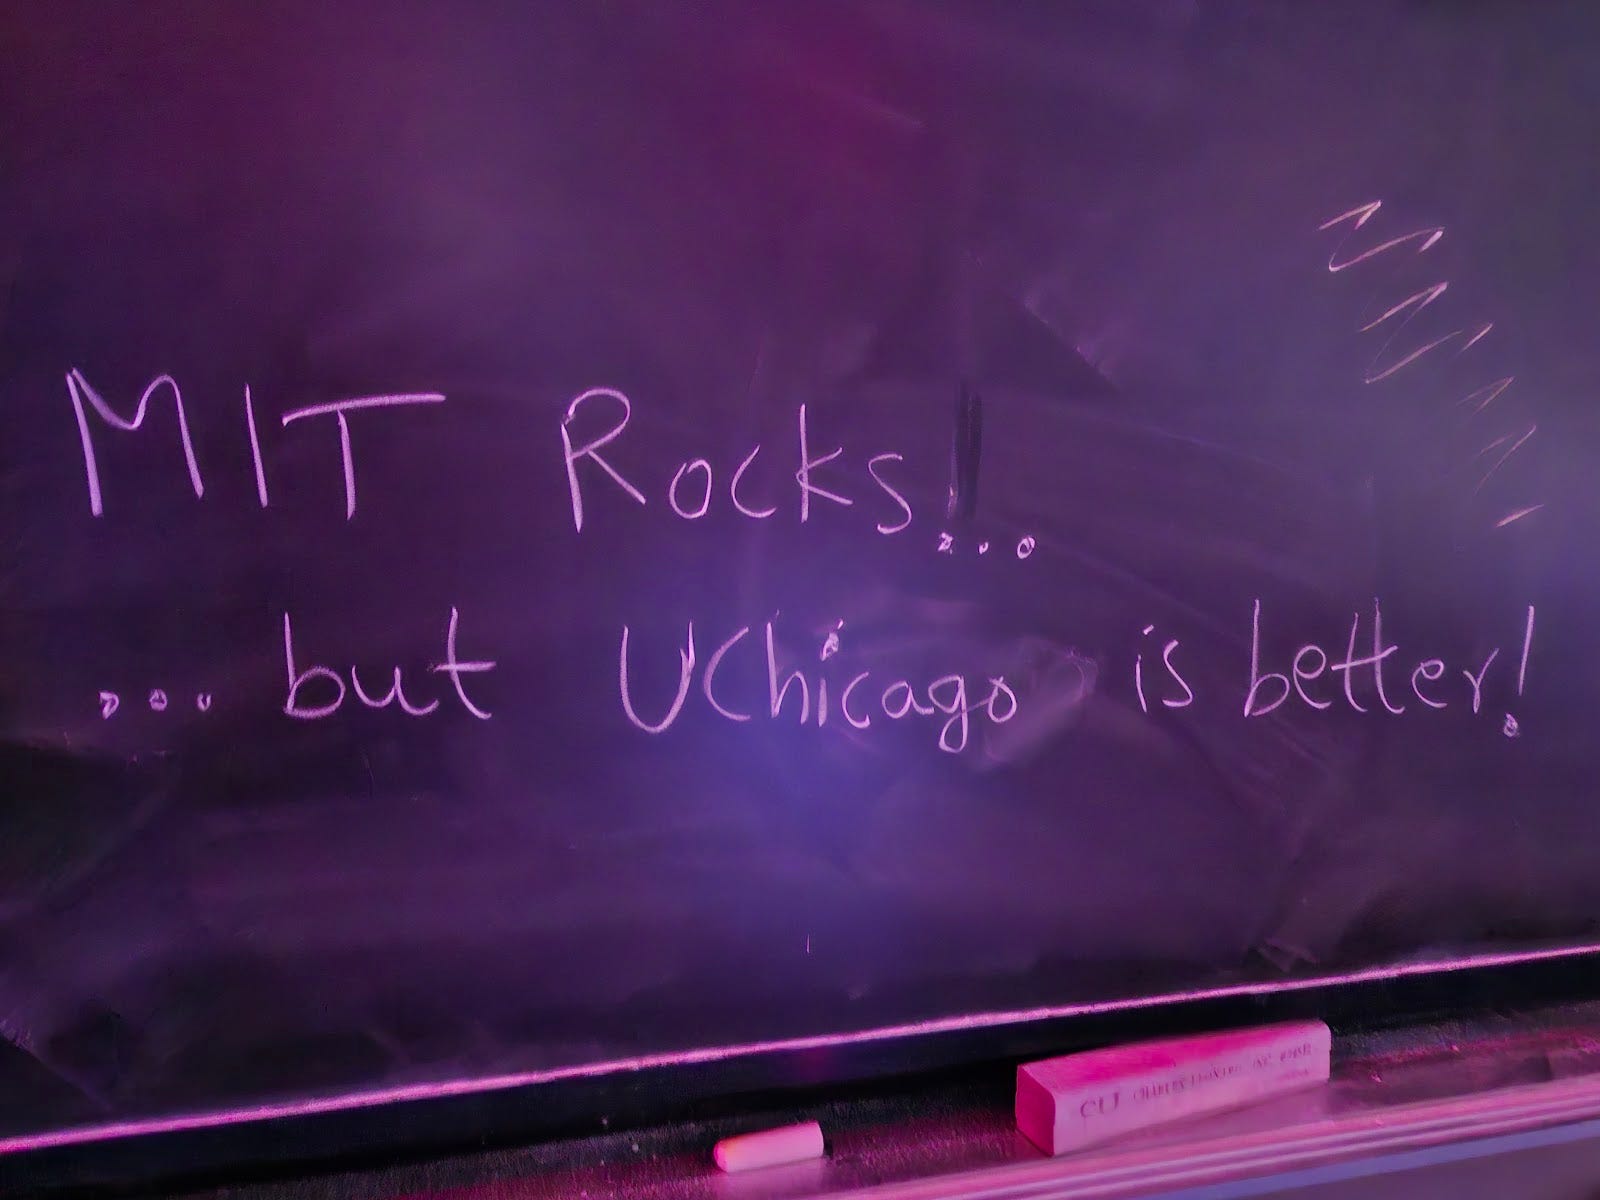 MIT Rocks!...
...but UChicago is better!
CLI CHARLES LEONARD INC.